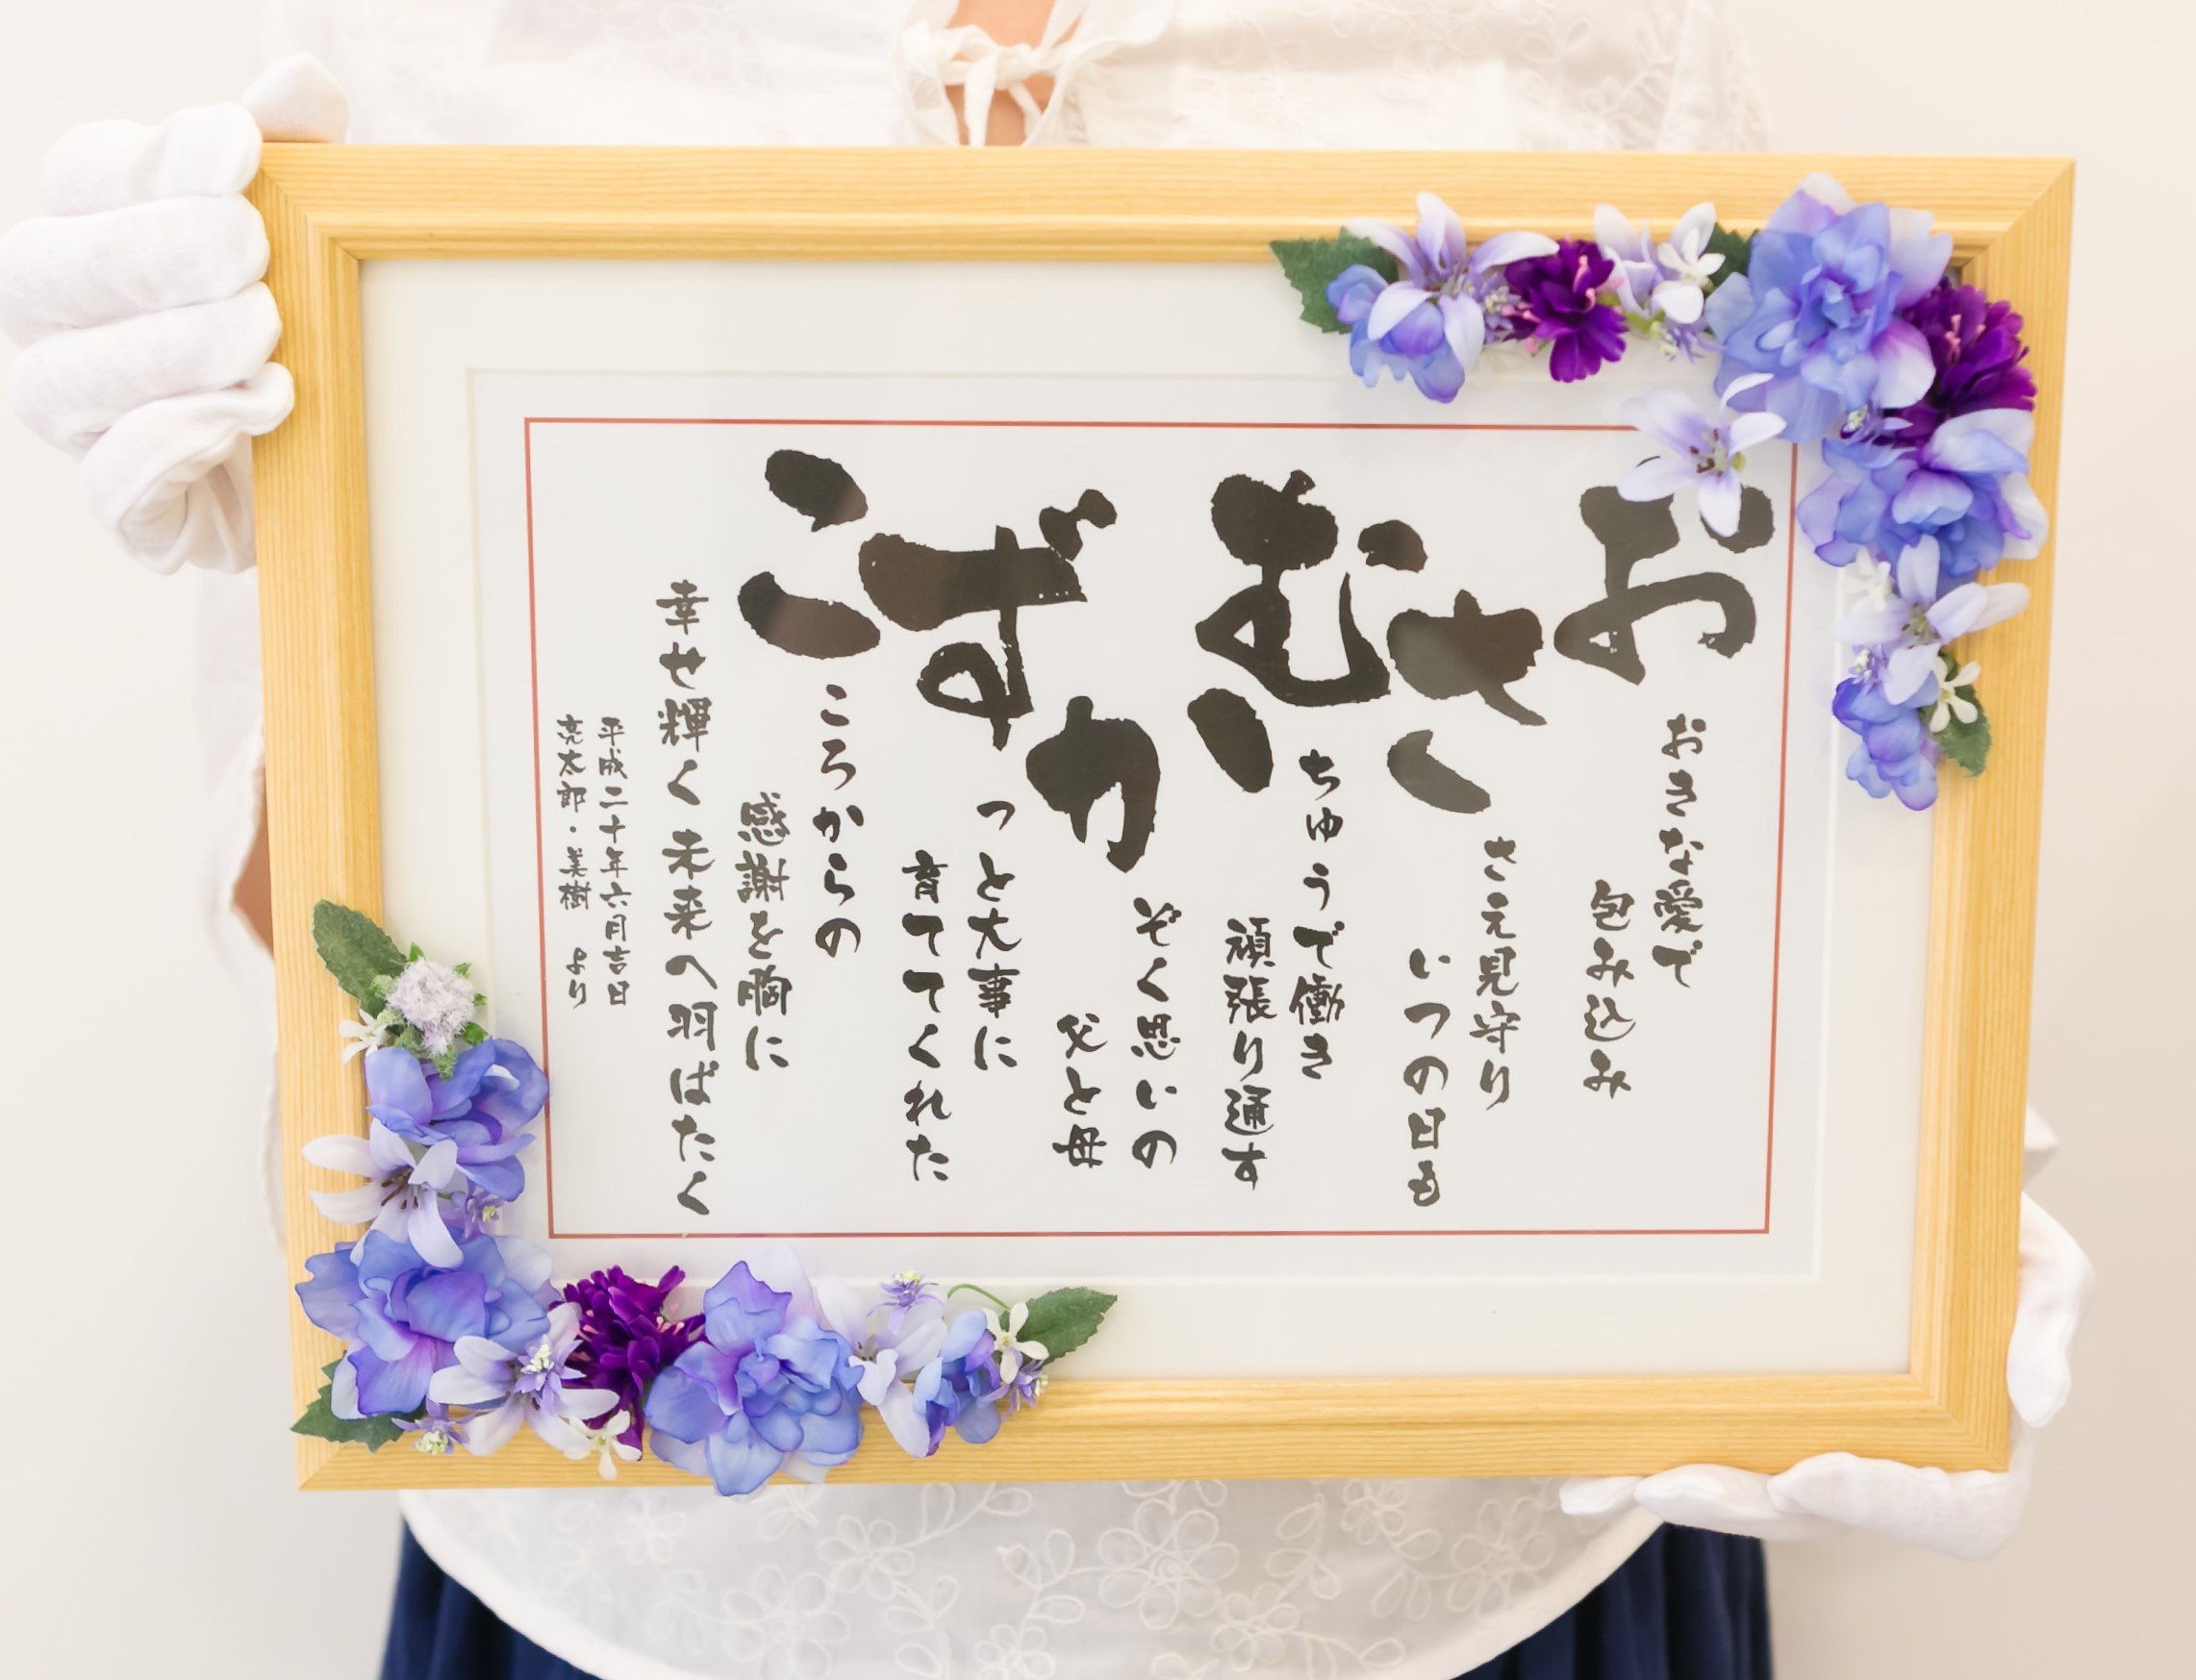 おさむ
かずこ
おきな愛で
包み込み
さえ見守り
いつの日も
ちゅうで働き
頑張り通す
ぞく思いの
父と母
っと大事に
育ててくれた
ころからの
感謝を胸に
幸せ輝く未来へ羽ばたく
平成二十年六月吉日
亮太郎・美樹 より